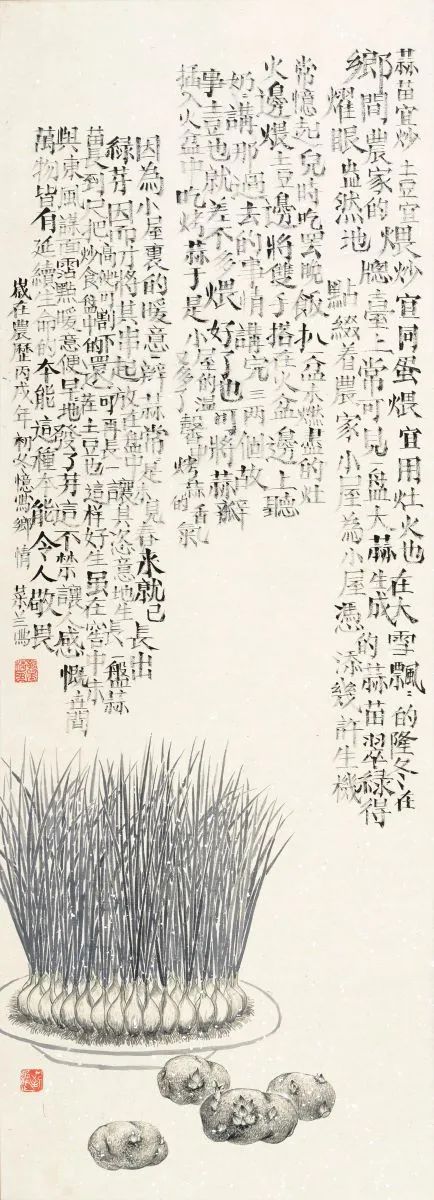 蒜苗宜炒土豆宜煨炒宜同蛋煨宜用灶火也在大雪飄飄的隆冬在
鄉間農家的窗臺上常可見一盤大蒜生成的蒜苗翠綠得
耀眼盎然地點綴着農家小屋為小屋憑添幾許生機
常憶起兒時吃罢晚飯扒一盆未燃盡的灶
火邊煨土豆邊將雙手搭在火盆邊上聽
奶奶講那過去的事情講完三两個故
事土豆也就差不多煨好了也可將蒜瓣
插入火盆中吃烤蒜于是小屋的温馨中又多了烤蒜香的氣
因為小屋裏的暖意蒜常是不見春水就已長出
綠芽因而可將其串起放在盤中讓其恣意地生長一盤蒜
苗長到尺把高便可割下炒食盤中的還可再長一茬土豆也這樣好生虽在窖中亦
與東風謀面霑點暖意便早早地發了芽這不禁讓人感慨世間
萬物皆有延續生命的本能這種本能令人敬畏
歲在農歷丙戌年初冬憶寫鄉情